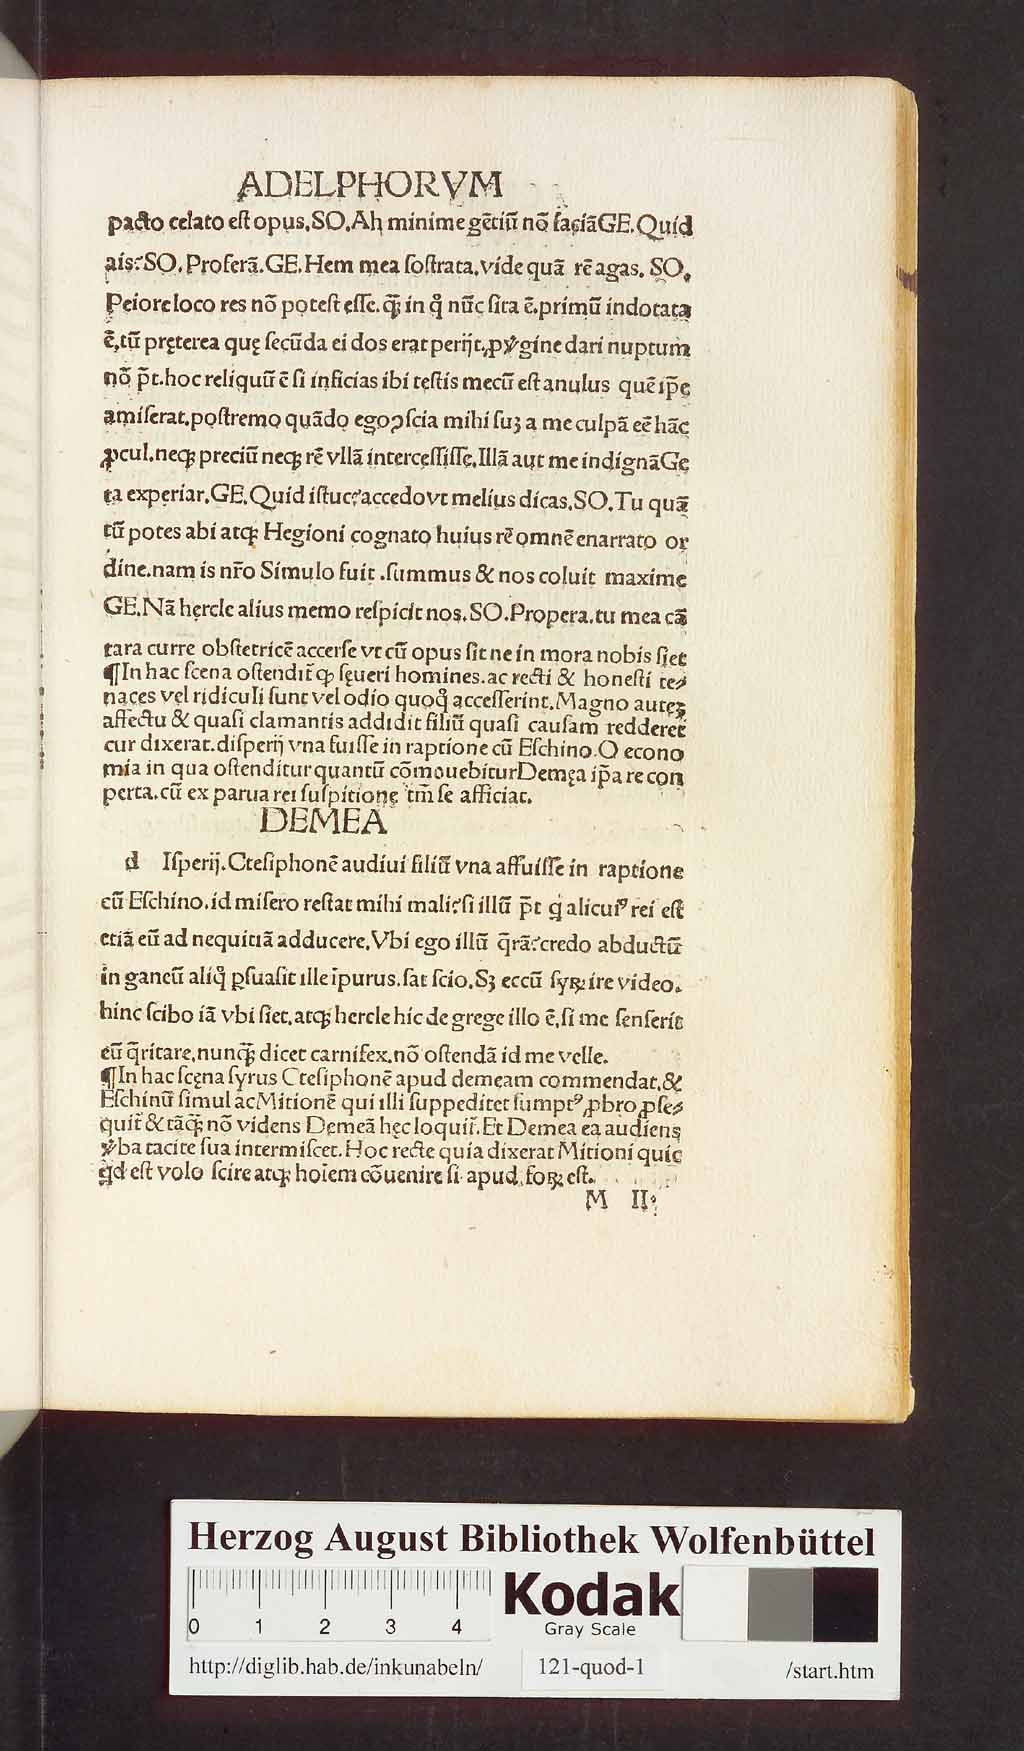 ADELPHORVM
pacto celato eſt opus.SO.Ah minime gẽtiũ nõ faciãGE.Quid
ais?SO.Proferã.GE.Hem mea ſoſtrata.vide quã rẽ agas. SO.
Peiore loco res nõ poteſt eſſe.ꝙ̃ in qͦ nũc ſita ẽ.primũ indotata
ẽ,tũ pręterea quę ſecũda ei dos erat perijt.,ꝓ ꝟgine dari nuptum
nõ p̃t.hoc reliquũ ẽ ſi inficias ibi teſtis mecũ eſt anulus quẽ ip̃e
amiſerat.poſtremo quãdo ego ↄſcia mihi ſuꝫ a me culpã eẽ hãc
ꝓcul.neqꝫ preciũ neqꝫ rẽ vllã interceſſiſſe.Illã aut me indignãGe
ta experiar.GE.Quid iſtuc?accedo vt melius dicas.SO.Tu quã
tũ potes abi atqꝫ Hegioni cognato huius rẽ omnẽ enarrato or
dine.nam is nr̃o Simulo fuit .ſummus & nos coluit maxime
GE.Nã hercle alius memo reſpicit nos.SO.Propera.tu mea cã
tara curre obſtetricẽ accerſe vt cũ opus ſit ne in mora nobis ſiet
¶In hac ſcena oſtendit̃ ꝙ ſęueri homines.ac recti & honeſti te⸗
naces vel ridiculi ſunt vel odio quoqͦ acceſſerint.Magno auteꝫ
affectu & quaſi clamantis addidit filiũ quaſi cauſam redderet
cur dixerat.diſperij vna fuiſſe in raptione cũ Eſchino.O econo
mia in qua oſtenditur quantũ cõmouebiturDemęa ip̃a re con
perta.cũ ex parua rei ſuſpitione tm̃ ſe afficiat.
DEMEA
d Iſperij.Cteſiphonẽ audiui filiũ vna affuiſſe in raptione
cũ Eſchino.id miſero reſtat mihi mali?ſi illũ p̃t q̇ alicuiꝰ rei eſt
etiã eũ ad nequitiã adducere.Vbi ego illũ q̃rã?credo abductũ
in ganeũ aliqͦ ꝑſuaſit ille ĩpurus.ſat ſcio.Sꝫ eccũ ſyꝝ ire video.
hinc ſcibo iã vbi ſiet.atqꝫ hercle hic de grege illo ẽ,ſi me ſenſerit
eũ q̃ritare,nunqꝫ̃ dicet carnifex.nõ oſtendã id me velle.
¶In hac ſcęna ſyrus Cteſiphonẽ apud demeam commendat.&
Eſchinũ ſimul ac Mitionẽ qui illi ſuppeditet ſumptꝰ ꝓbro ꝓſe⸗
quit̃ & tãqꝫ̃ nõ videns Demeã hęc loquit̃.Et Demea ea audiens
ꝟba tacite ſua intermiſcet.Hoc recte quia dixerat Mitioni quic
q̇d eſt volo ſcire atqꝫ hoĩem cõuenire ſi apud foꝝ eſt.
M II
Herzog August Bibliothek Wolfenbüttel
0 1 2 3 4
Kodak
Gray Scale
http://diglib.hab.de/inkunabeln/ 121-quod-1 /start.htm